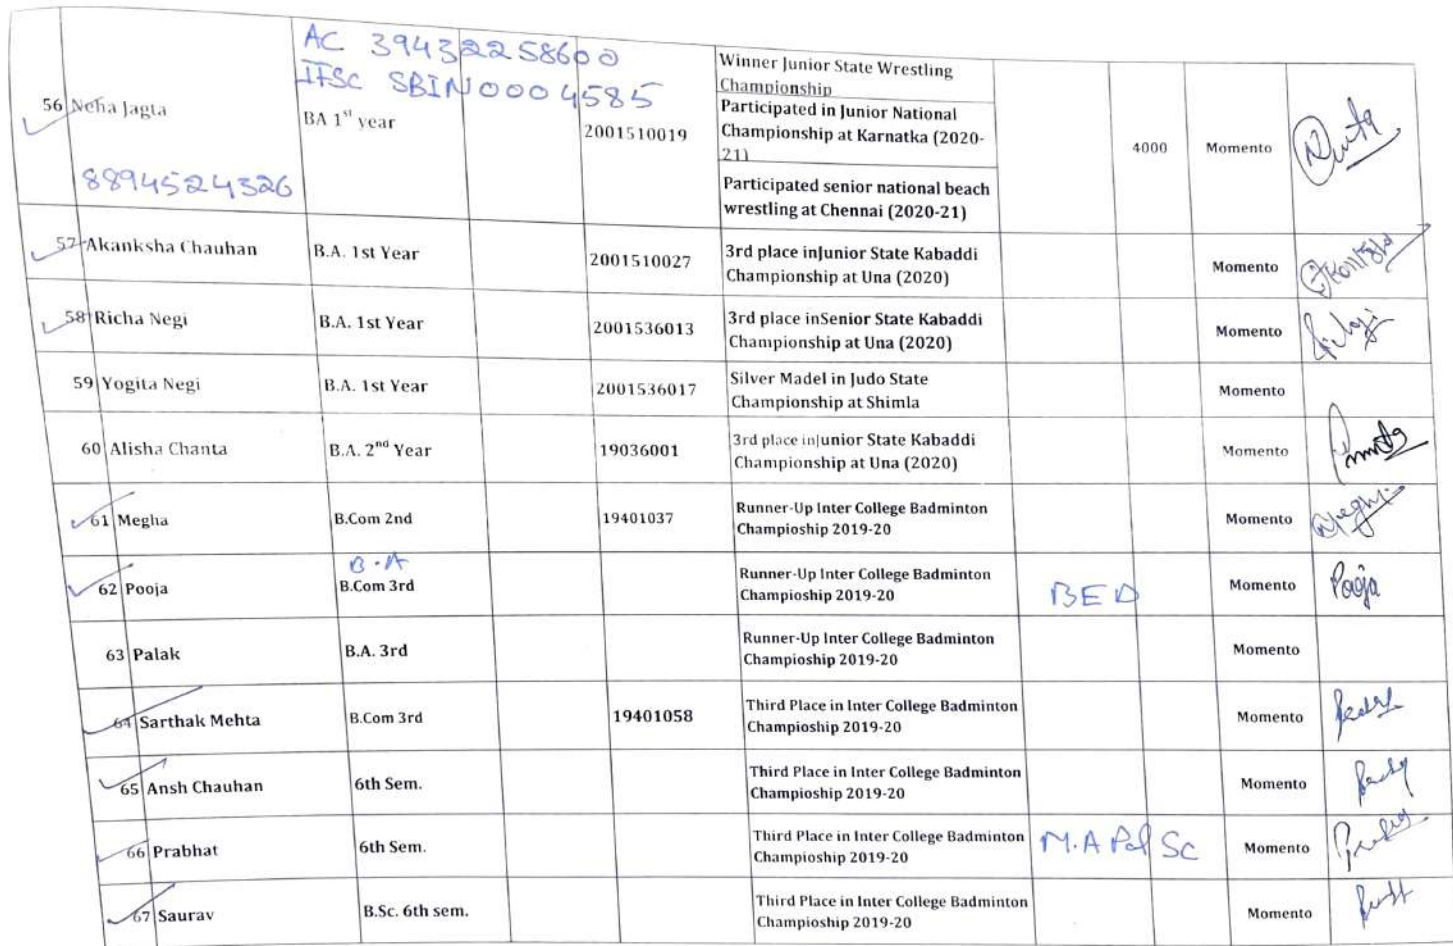 AC 39432258600
IFSC SBIN0004585
56 Neha Jagta BA 1st year 2001510019 Winner Junior State Wrestling
Championship
Participated in Junior National
Championship at Karnatka (2020-
21)
4000 Momento
8894524326
Participated senior national beach
wrestling at Chennai (2020-21)
57 Akanksha Chauhan B.A. 1st Year 2001510027 3rd place inJunior State Kabaddi
Championship at Una (2020)
Momento
58 Richa Negi B.A. 1st Year 2001536013 3rd place inSenior State Kabaddi
Championship at Una (2020)
Momento
59 Yogita Negi B.A. 1st Year 2001536017 Silver Madel in Judo State
Championship at Shimla
Momento
60 Alisha Chanta B.A. 2nd Year 19036001 3rd place inJunior State Kabaddi
Championship at Una (2020)
Momento
61 Megha B.Com 2nd 19401037 Runner-Up Inter College Badminton
Champioship 2019-20
Momento
B.A
62 Pooja B.Com 3rd Runner-Up Inter College Badminton
Champioship 2019-20
BED Momento Pooja
63 Palak B.A. 3rd Runner-Up Inter College Badminton
Champioship 2019-20
Momento
64 Sarthak Mehta B.Com 3rd 19401058 Third Place in Inter College Badminton
Champioship 2019-20
Momento
65 Ansh Chauhan 6th Sem. Third Place in Inter College Badminton
Champioship 2019-20
Momento
66 Prabhat 6th Sem. Third Place in Inter College Badminton
Champioship 2019-20
M.A Pol Sc Momento
67 Saurav B.Sc. 6th sem. Third Place in Inter College Badminton
Champioship 2019-20
Momento